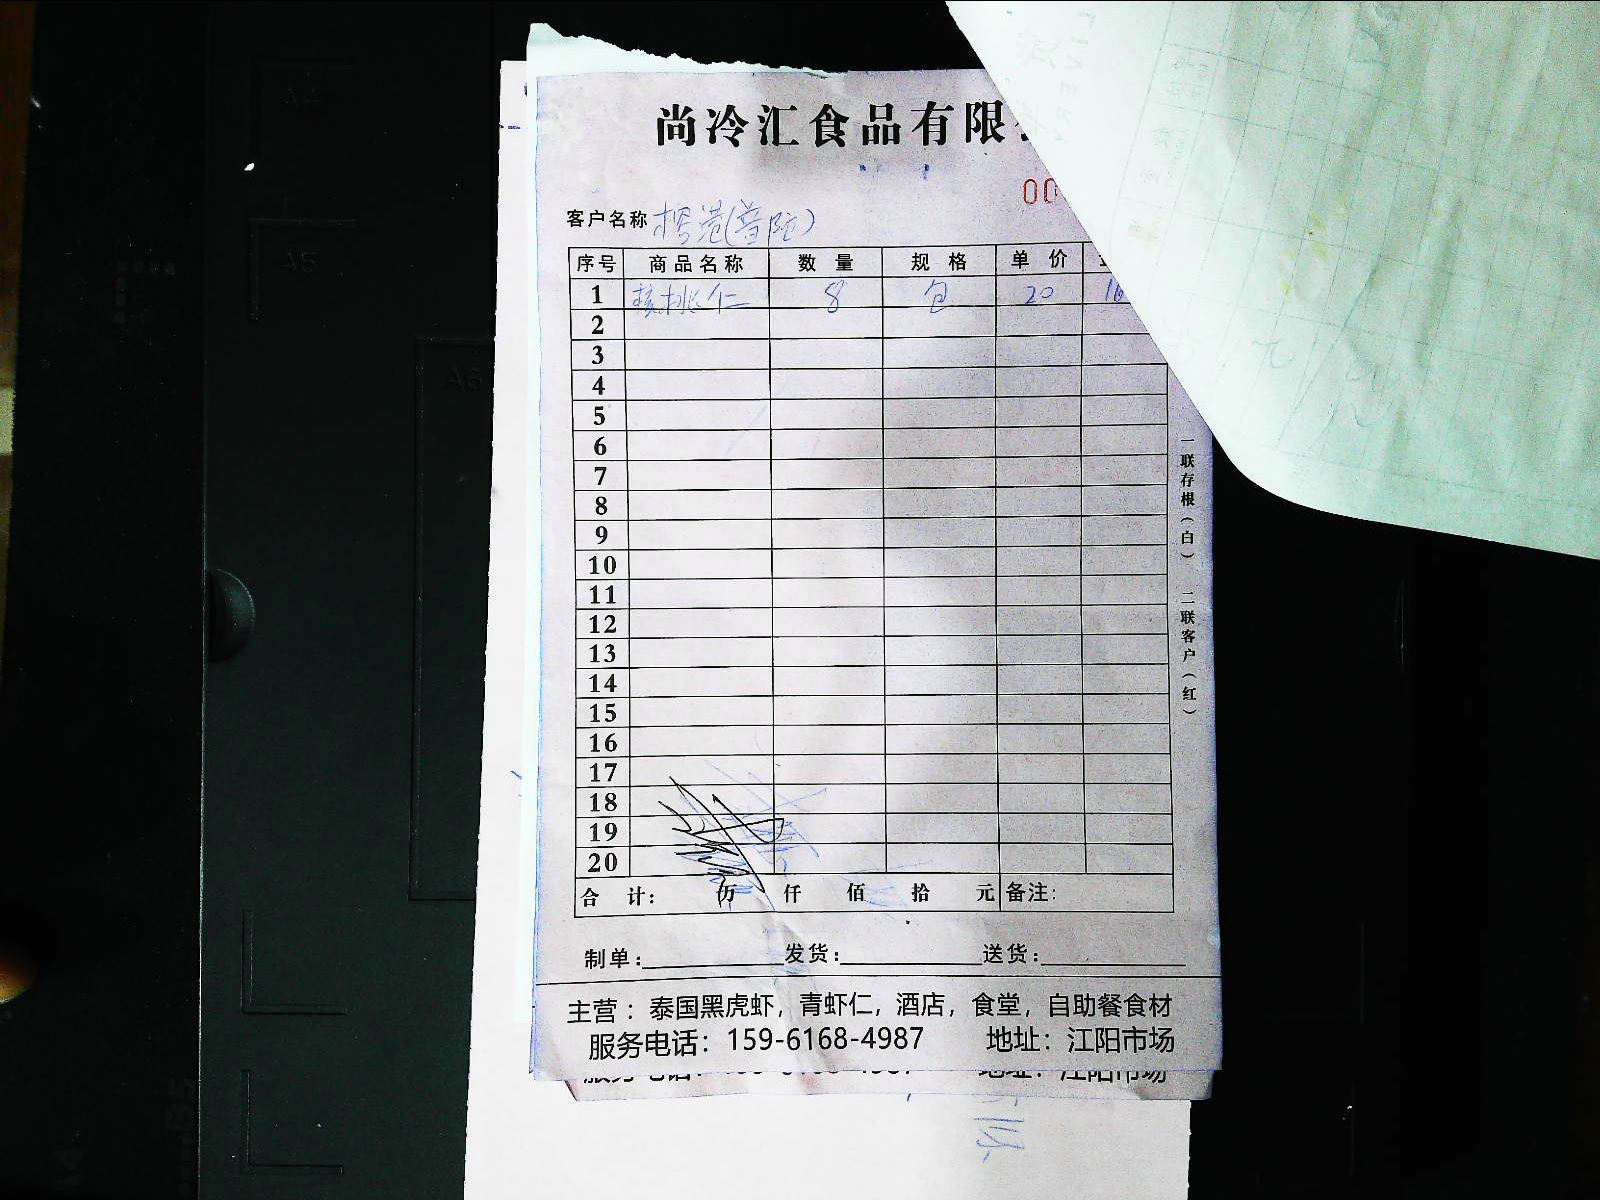 尚冷汇食品有限
00
客户名称 档港(普陀)
序号 商品名称 数量 规格 单价
1 核桃仁 8 包 20 16
2
3
4
5
6
7
8
9
10
11
12
13
14
15
16
17
18
19
20
合计: 万 仟 佰 拾 元 备注:
制单: 发货: 送货:
主营：泰国黑虎虾，青虾仁，酒店，食堂，自助餐食材
服务电话：159-6168-4987 地址：江阳市场
一联存根（白） 二联客户（红）
A4
A5
A6